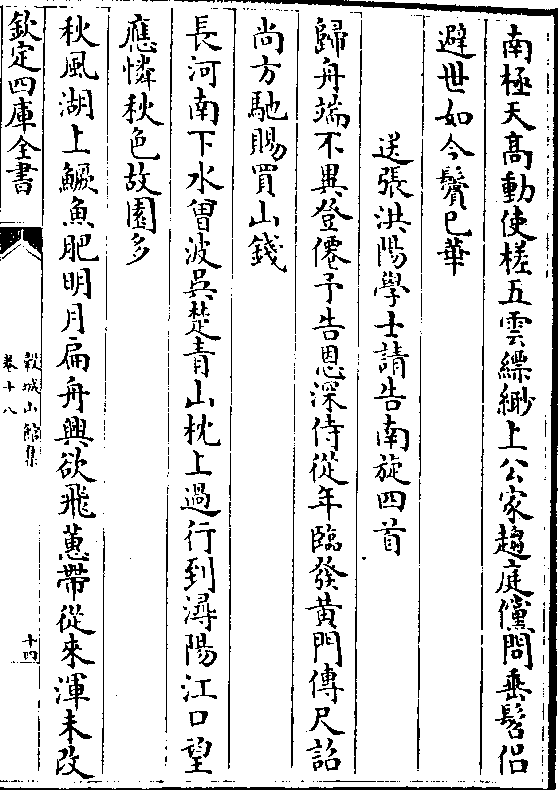 南極天高動使槎五雲縹緲上公家趨庭儻問垂髫侣
避世如今鬢已華
送張洪陽學士請告南旋四首
歸舟端不異登僊予告恩深侍從年臨發黃門傳尺詔
尚方馳賜買山錢
長河南下水曾波吳楚青山枕上過行到潯陽江口望
應憐秋色故園多
秋風湖上鱖魚肥明月扁舟興欲飛蕙帶從來渾未改
欽定四庫全書
穀城山館集
卷十八
十四